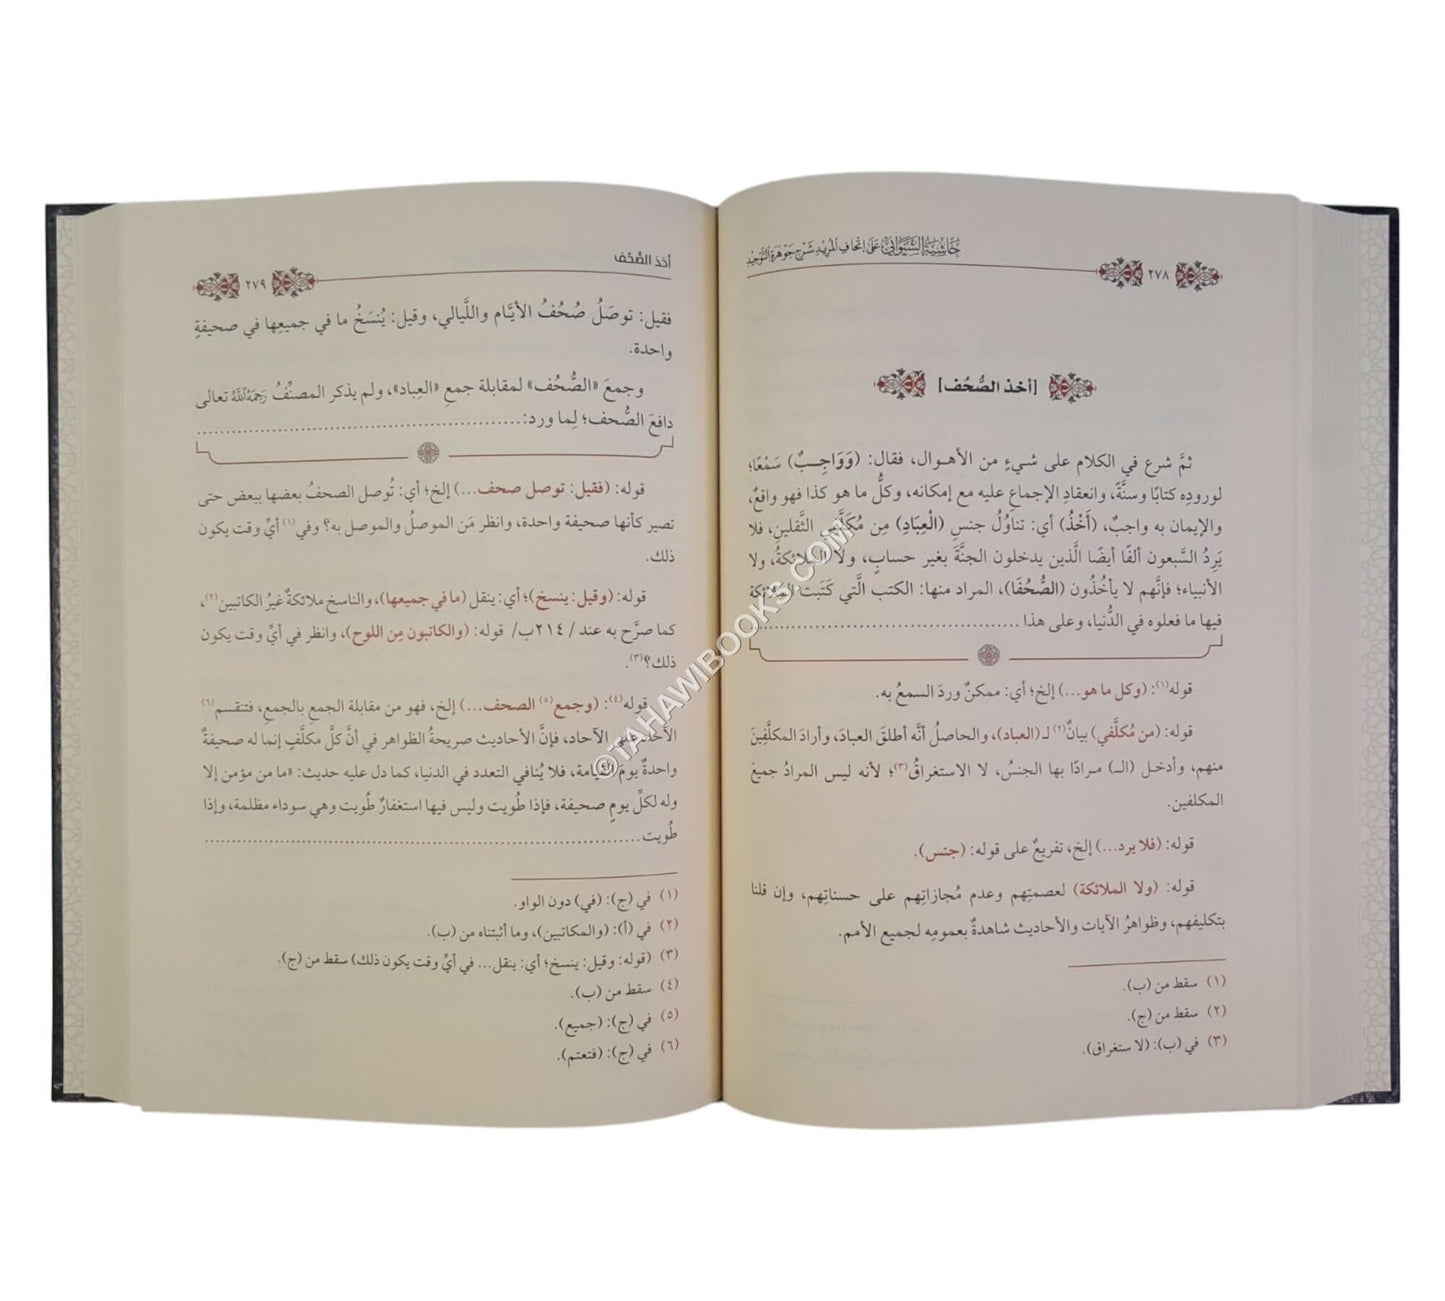 حاشية الشنواني على إتحاف المريد شرح جوهرة التوحيد
٢٧٨
[أخذ الصُّحُف]
ثمَّ شرع في الكلام على شيءٍ من الأهـوال، فقال: (وَوَاجِـبٌ) سَمْعًا؛
لورودِه كتابًا وسنَّةً، وانعقادِ الإجماعِ عليه مع إمكانه، وكلُّ ما هو كذا فهو واقعٌ،
والإيمان به واجبٌ، (أَخْذُ) أي: تناوُلُ جنسِ (الْعِبَادِ) مِن مُكَلَّفي الثَّقلينِ، فلا
يَرِدُ السَّبعون ألفًا أيضًا الَّذين يدخلون الجنَّةَ بغير حسابٍ، ولا الملائكةُ، ولا
الأنبياء؛ فإنَّهم لا يأخُذُون (الصُّحُفَا)، المراد منها: الكتب الَّتي كَتَبَت الملائكة
فيها ما فعلوه في الدُّنيا، وعلى هذا ..........................................
قوله(١): (وكل ما هو...) إلخ؛ أي: ممكنٌ وردَ السمعُ به.
قوله: (من مُكلَّفي) بيانٌ(٢) لـ (العباد)، والحاصلُ أنَّه أطلقَ العبادَ، وأرادَ المكلَّفِينَ
منهم، وأدخـل (الـ) مـرادًا بها الجنسُ، لا الاستغراقُ(٣)؛ لأنه ليس المرادُ جميعَ
المكلفين.
قوله: (فلا يرد...) إلخ، تفريعٌ على قوله: (جنس).
قوله: (ولا الملائكة) لعصمتِهم وعدم مُجازاتِهم على حسناتِهم، وإن قلنا
بتكليفهم، وظواهرُ الآيات والأحاديث شاهدةٌ بعمومِه لجميع الأمم.
(١) سقط من (ب).
(٢) سقط من (ج).
(٣) في (ب): (لا ستغراق).
أخذ الصُّحُف
٢٧٩
فقيل: توصَلُ صُحُفُ الأيَّام واللَّيالي، وقيل: يُنسَخُ ما في جميعِها في صحيفةٍ
واحدة.
وجمعَ «الصُّحُف» لمقابلة جمعِ «العِباد»، ولم يذكر المصنِّفُ رَحِمَهُ اللَّهُ تعالى
دافعَ الصُّحف؛ لِما ورد: ..................................................
قوله: (فقيل: توصل صحف...) إلخ؛ أي: تُوصل الصحفُ بعضها ببعض حتى
تصير كأنها صحيفة واحدة، وانظر مَن الموصلُ والموصل به؟ وفي(١) أيِّ وقت يكون
ذلك.
قوله: (وقيل: ينسخ)؛ أي: ينقل (ما في جميعها)، والناسخ ملائكةٌ غيرُ الكاتبين(٢)،
كما صرَّح به عند / ٢١٤ب/ قوله: (والكاتبون مِن اللوح)، وانظر في أيِّ وقت يكون
ذلك؟(٣).
قوله(٤): (وجمع(٥) الصحف...) إلخ، فهو من مقابلة الجمعِ بالجمعِ، فتنقسم(٦)
الآحاد على الآحاد، فإنَّ الأحاديث صريحةُ الظواهر في أنَّ كلَّ مكلَّفٍ إنما له صحيفةٌ
واحدةٌ يومَ القيامة، فلا يُنافي التعدد في الدنيا، كما دل عليه حديث: «ما من مؤمن إلا
وله لكلِّ يومٍ صحيفة، فإذا طُويت وليس فيها استغفارٌ طُويت وهي سوداء مظلمة، وإذا
طُويت ............................................................
(١) في (ج): (في) دون الواو.
(٢) في (أ): (والمكاتبين)، وما أثبتناه من (ب).
(٣) (قوله: وقيل: ينسخ؛ أي: ينقل... في أيِّ وقت يكون ذلك) سقط من (ج).
(٤) سقط من (ب).
(٥) في (ج): (جميع).
(٦) في (ج): (فتعتم).
©TAHAWIBOOKS.COM